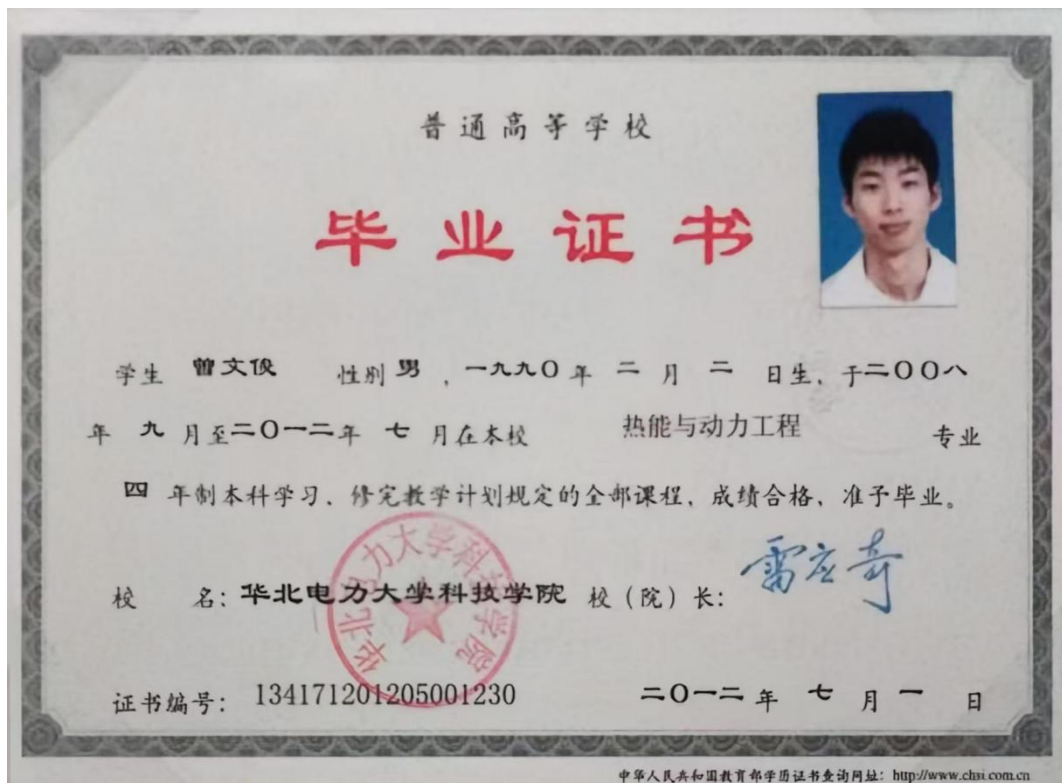 普通高等学校
毕业证书
学生 曾文俊 性别 男 ，一九九〇年 二 月 二 日生，于二〇〇八
年 九 月至二〇一二年 七 月在本校 热能与动力工程 专业
四 年制本科学习、修完教学计划规定的全部课程，成绩合格，准予毕业。
华北电力大学科技学院
校 名：华北电力大学科技学院 校（院）长：雷应奇
证书编号：134171201205001230 二〇一二年 七 月 一 日
中华人民共和国教育部学历证书查询网址：http://www.chsi.com.cn